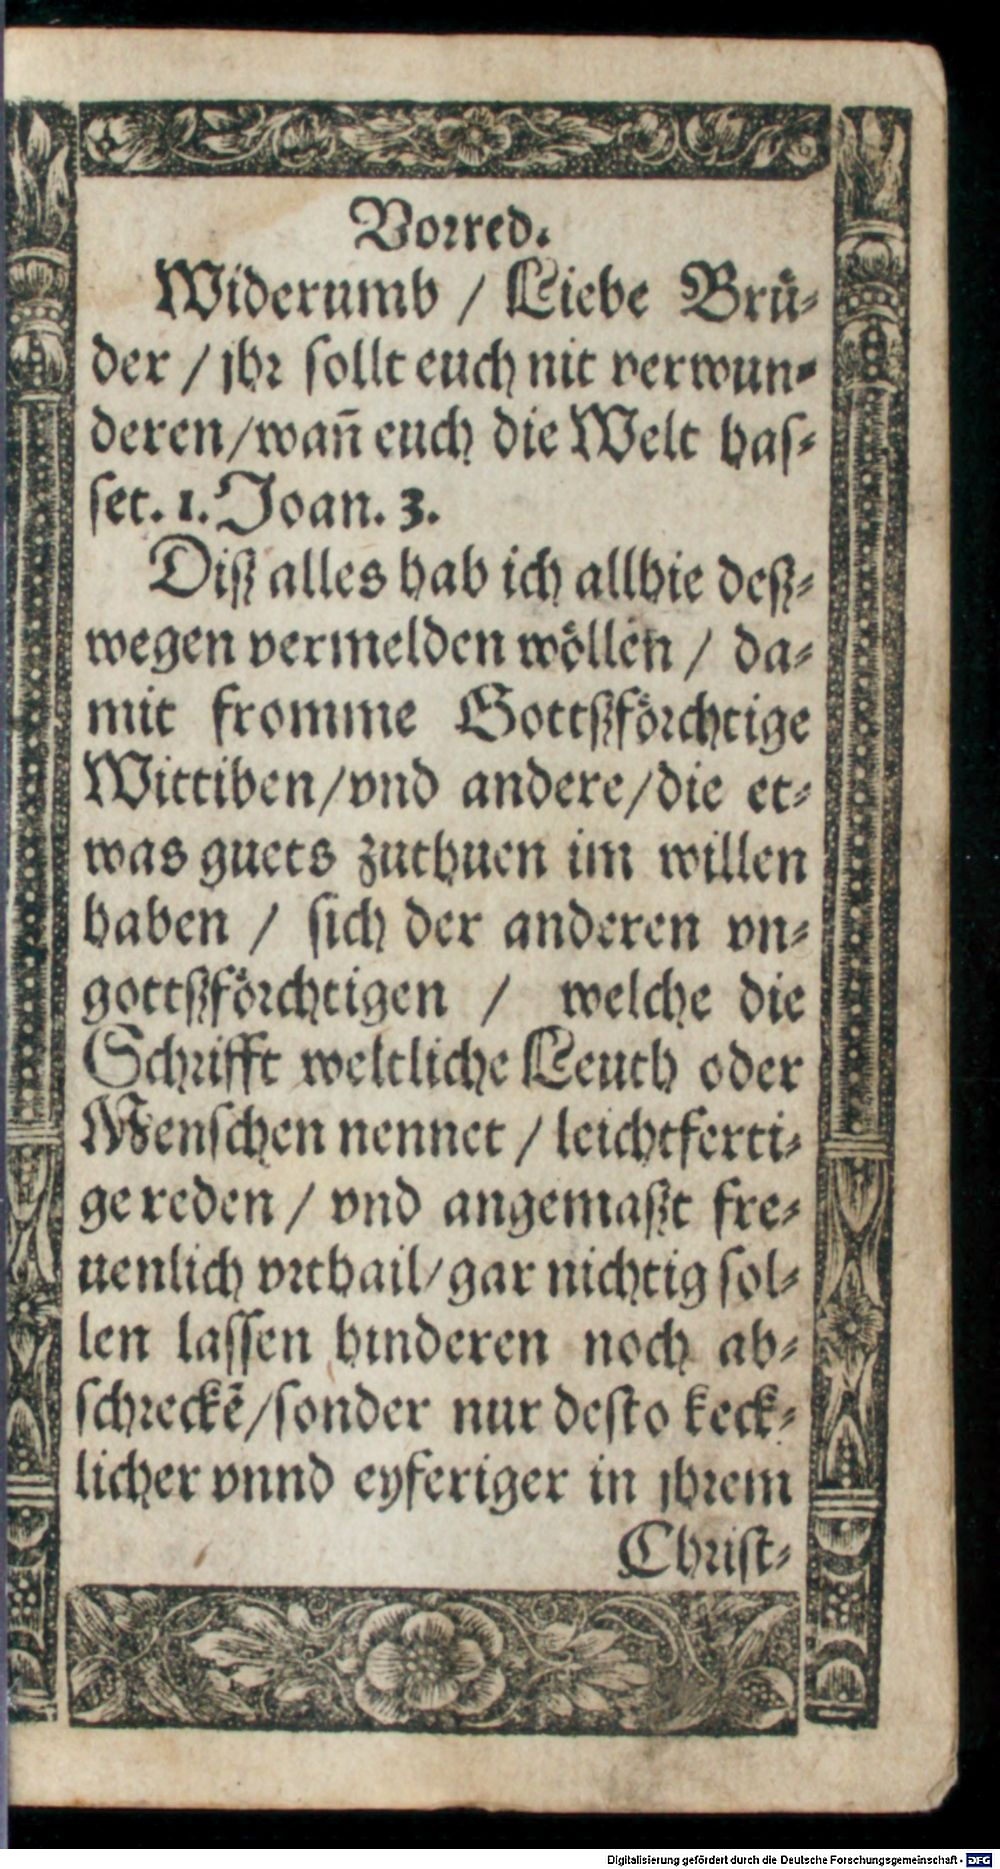 Vorred.
Widerumb / Liebe Brü-
der / jhr sollt euch nit verwun-
deren / wañ euch die Welt has-
set. 1. Joan. 3.
Diß alles hab ich allhie deß-
wegen vermelden wöllen / da-
mit fromme Gottsförchtige
Wittiben / vnd andere / die et-
was guets zuthuen im willen
haben / sich der anderen vn-
gottsförchtigen / welche die
Schrifft weltliche Leuth oder
Menschen nennet / leichtferti-
ge reden / vnd angemaßt fre-
uenlich vrthail / gar nichtig sol-
len lassen hinderen noch ab-
schreckẽ / sonder nur desto keck-
licher vnnd eyferiger in jhrem
Christ-
Digitalisierung gefördert durch die Deutsche Forschungsgemeinschaft - DFG